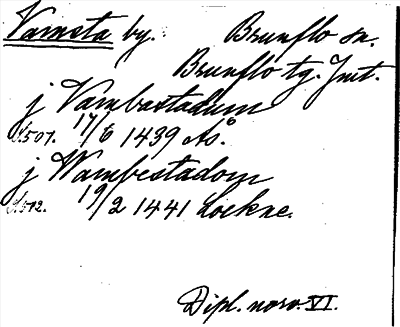 Vamsta by. Brunflo sn.
Brunflo tg. Jmt.
j Vambastadum
s.507. 17/6 1439 Ås.
j Wambestadom
s.512. 19/2 1441 Lockne.
Dipl. norv. VI.